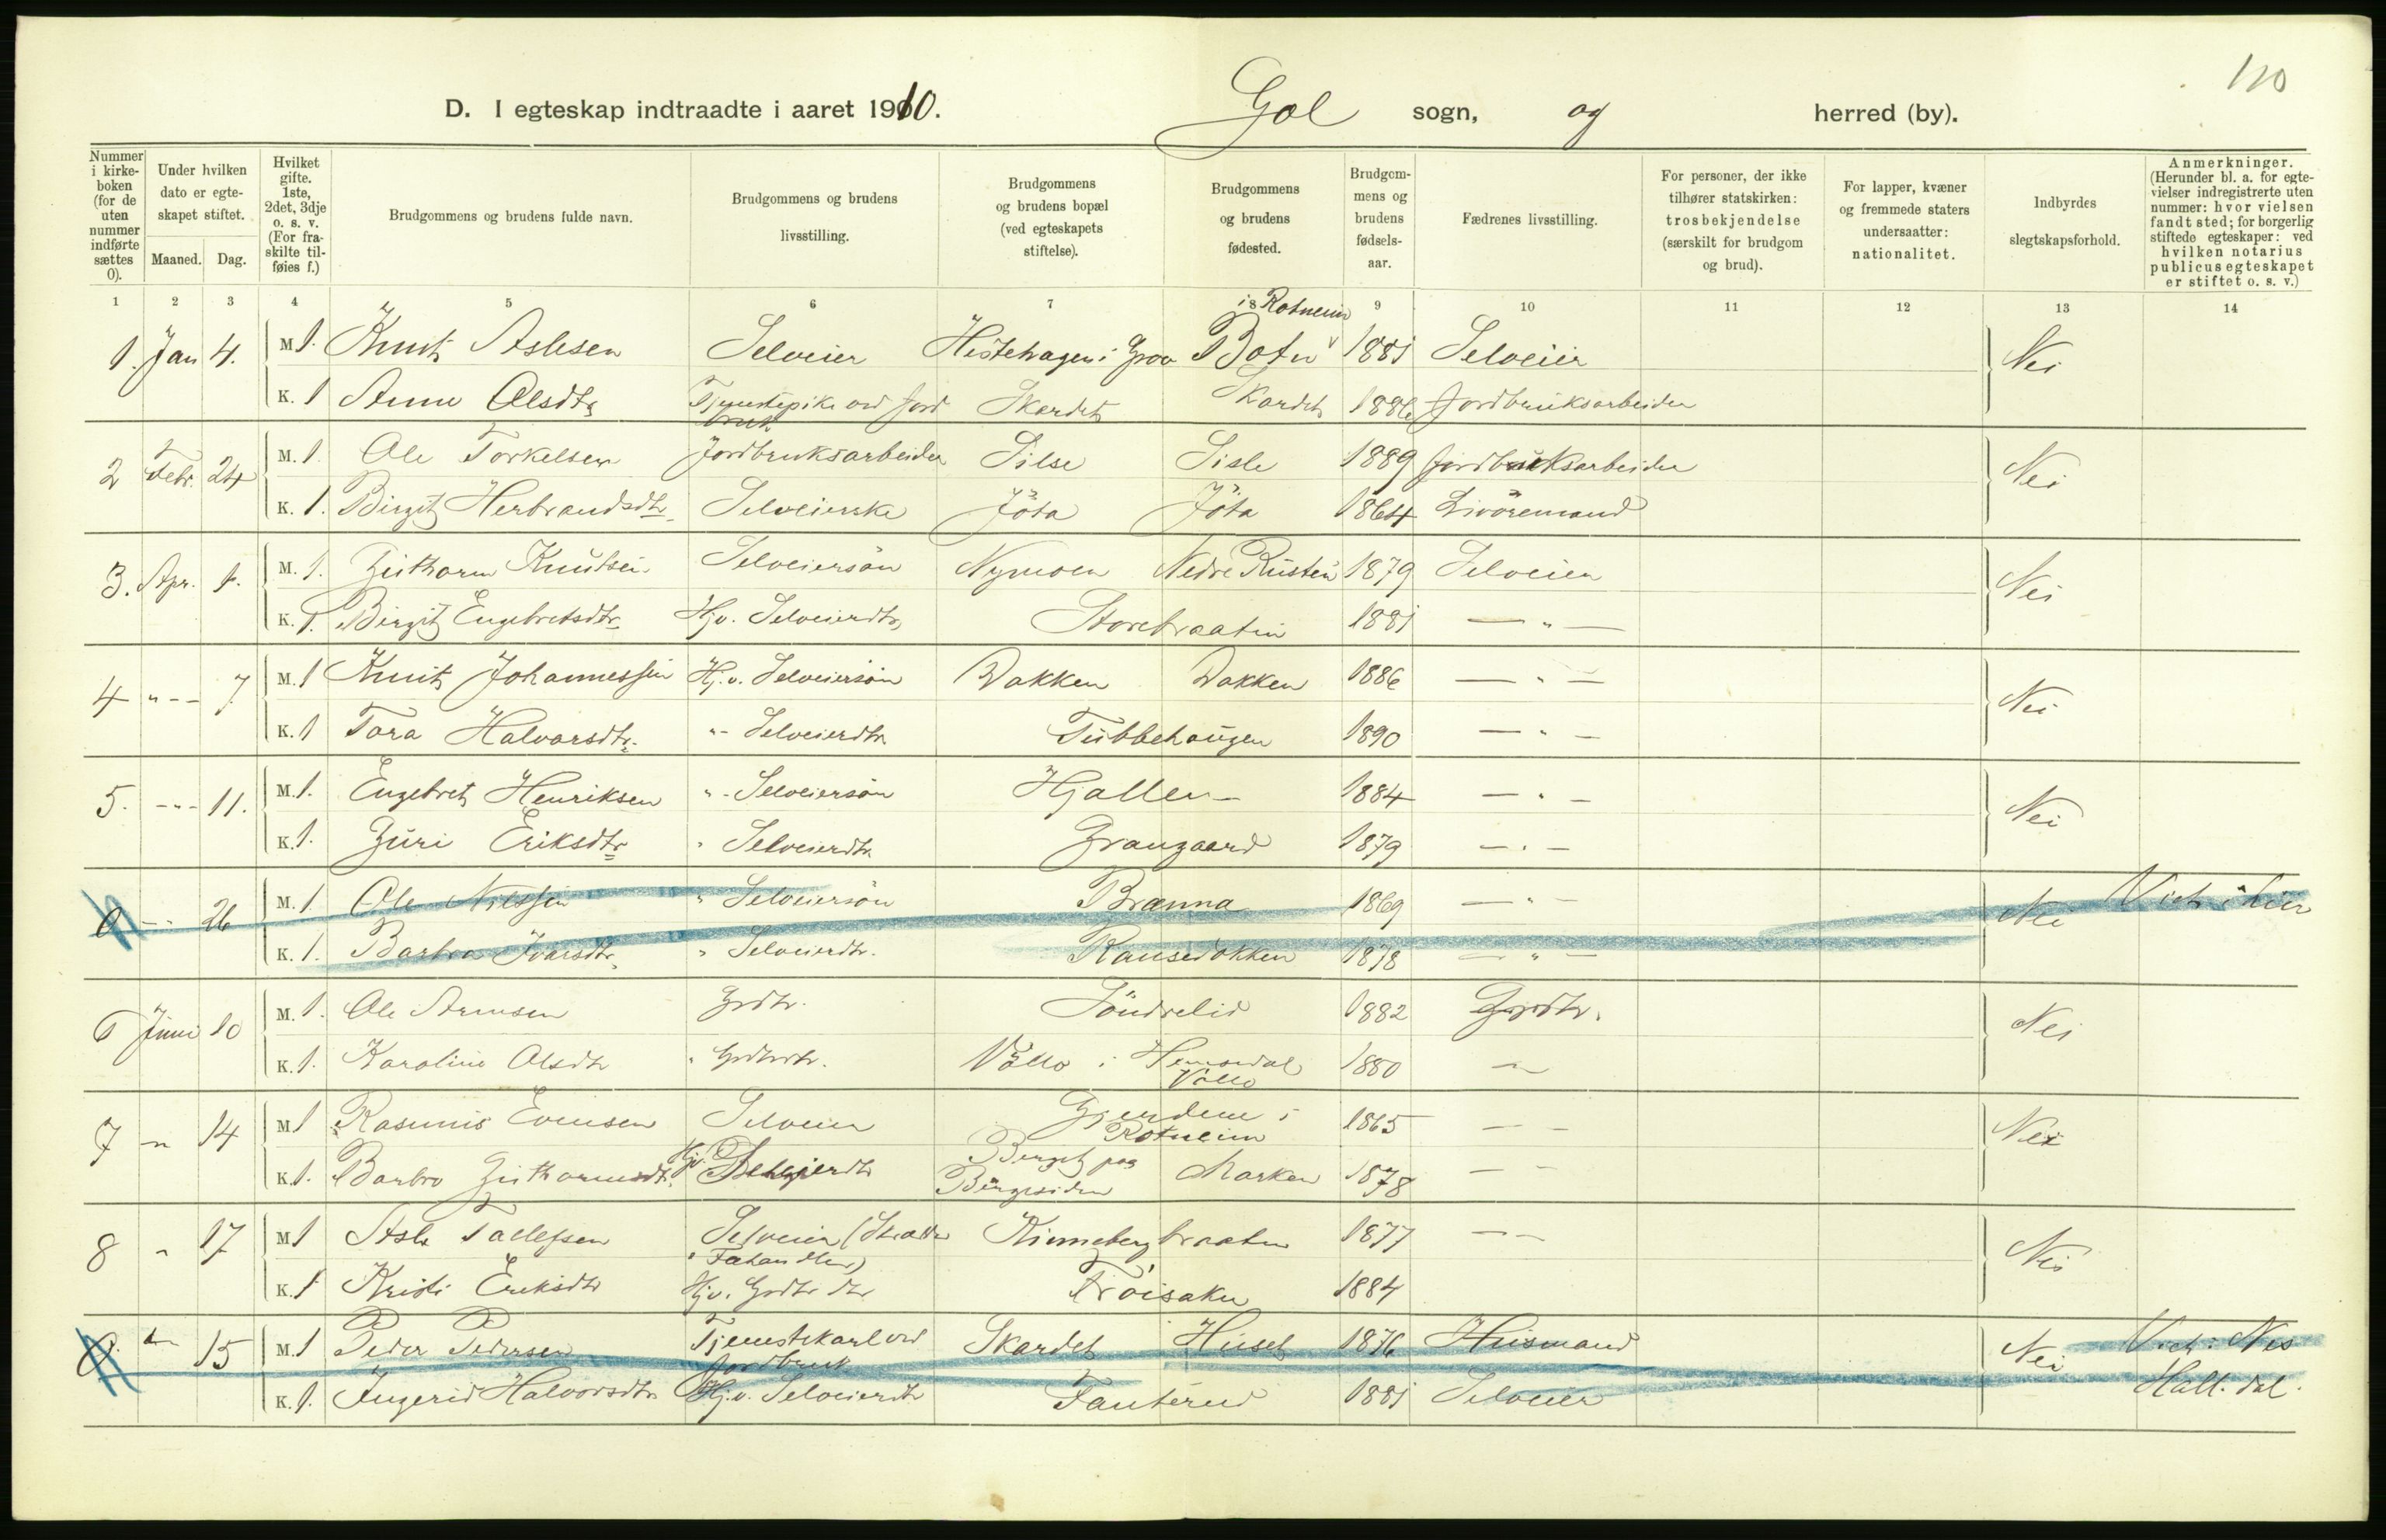 110
D. I egteskap indtraadte i aaret 1910. Gol sogn, og herred (by).
Nummer i kirke-boken (for de uten nummer indførte sættes 0).
Under hvilken dato er egte-skapet stiftet.
Maaned. Dag.
Hvilket gifte. 1ste, 2det, 3dje o. s. v. (For fra-skilte til-føies f.)
Brudgommens og brudens fulde navn.
Brudgommens og brudens livsstilling.
Brudgommens og brudens bopæl (ved egteskapets stiftelse).
Brudgommens og brudens fødested.
Brudgom-mens og brudens fødsels-aar.
Fædrenes livsstilling.
For personer, der ikke tilhører statskirken: trosbekjendelse (særskilt for brudgom og brud).
For lapper, kvæner og fremmede staters undersaatter: nationalitet.
Indbyrdes slegtskapsforhold.
Anmerkninger. (Herunder bl. a. for egte-vielser indregistrerte uten nummer: hvor vielsen fandt sted; for borgerlig stiftede egteskaper: ved hvilken notarius publicus egteskapet er stiftet o. s. v.)
1 2 3 4 5 6 7 8 9 10 11 12 13 14
i Rotneim
1. Jan 4. M 1. Knut Aslesen Selveier Hestehagen i Grøv Botn 1881 Selveier Nei
K. 1 Anne Olsdtr Tjenestepike ved jord Skardet Skardet 1886 Jordbruksarbeider
bruk
2 Febr. 24 M. 1. Ole Torkelsen Jordbruksarbeider Silse Sisle 1889 Jordbruksarbeider Nei
K. 1. Birgit Herbrandsdtr Selveierske Jöta Jöta 1864 Livöremand
3. Apr. 1. M. 1. Guttorm Knutsen Selveiersön Nymoen Nedre Rusten 1879 Selveier Nei
K. 1. Birgit Engebretsdtr Hjv. Selveierdtr Storebraaten 1881 — " —
4 " - - 7. M. 1 Knut Johannessen Hj.v. Selveiersön Dokken Dokken 1886 — " — Nei
K. 1 Tora Halvorsdtr. " - Selveierdtr Tubbehaugen 1890 — " —
5. - " - 11. M. 1. Engebret Henriksen " - Selveiersön Hjallen 1884 — " — Nei
K. 1. Guri Eriksdtr " Selveierdtr Grangaard 1879 — " —
0 - - 26 M. 1 Ole Nilssen " Selveiersön Brænna 1869 — " — Nei Viet i Lier
K. 1. Barbro Ivarsdtr " Selveierdtr. Ransedokken 1878 — " —
6 Juni 10 M. 1. Ole Arnesen Grdbr. Söndrelid 1882 Grdbr. Nei
K. 1. Karoline Olsdtr " Grdbrdtr. Vøllo i Hemsedal 1880 —
Vøllo
7 - " 14 M 1 Rasmus Evensen Selveier Gjerdene i 1865 — — Nei
Rotneim
K. 1. Barbro Guttormsdtr. Hjv. Selveierdtr Berget paa Marken 1878 — —
Bergesiden
8 " 17 M 1 Asle Tollefsen Selveier Kinnebergbraaten 1877 — — Nei
Fæhandler)
K. 1 Kristi Eriksdtr Hjv. Grdbr dtr Tröisaker 1884
0. " 15 M. 1 Peder Pedersen Tjenestekarl ved Skardet Huset 1876 Husmand Nei Viet i Nes
Jordbruk
K. 1. Ingerid Halvorsdtr Hj.v. Selveierdtr Fauterud 1881 Selveier Hall. dal.